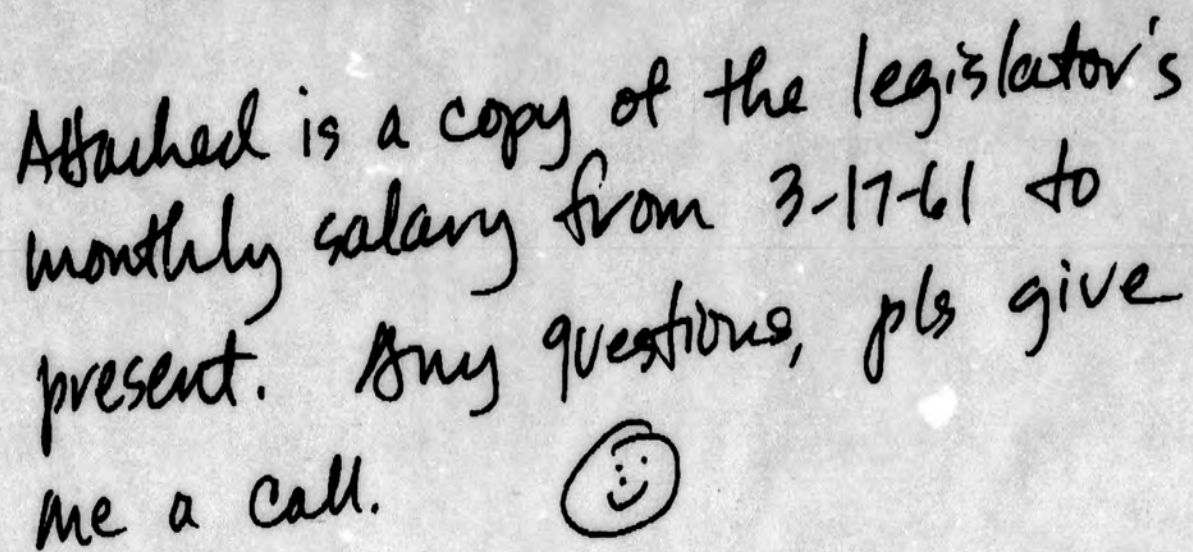 Attached is a copy of the legislator's
monthly salary from 3-17-61 to
present. Any questions, pls give
me a call.